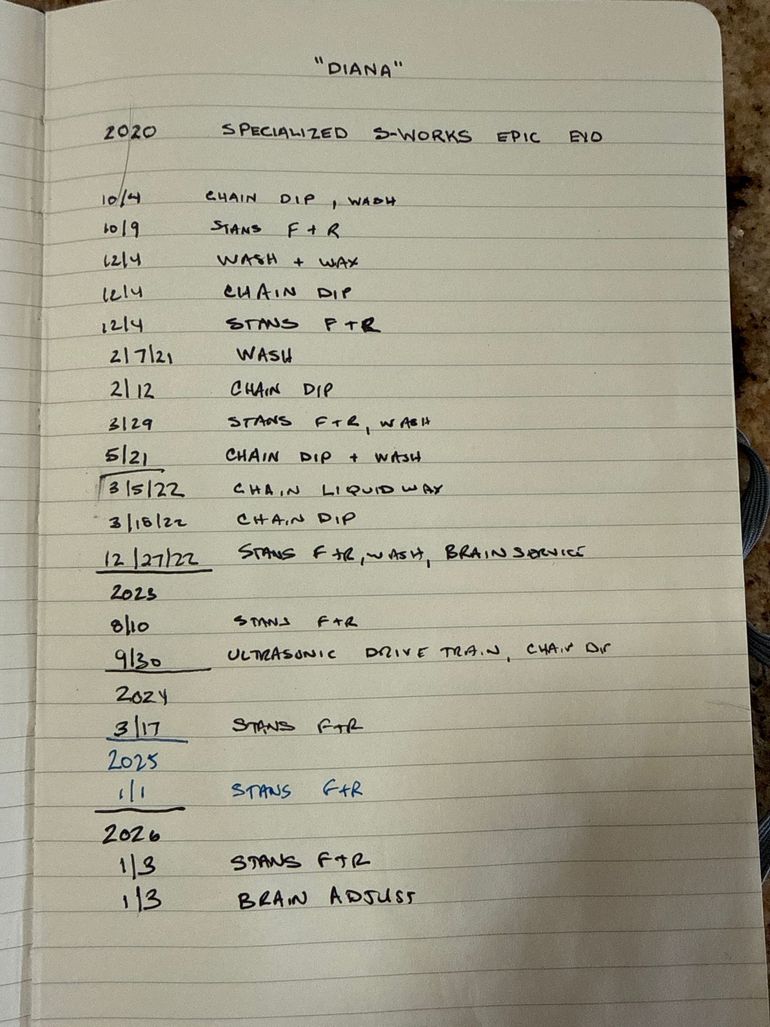 "DIANA"
2020 SPECIALIZED S-WORKS EPIC EVO
10/4 CHAIN DIP, WASH
10/9 STANS F+R
12/4 WASH + WAX
12/4 CHAIN DIP
12/4 STANS F+R
2/7/21 WASH
2/12 CHAIN DIP
3/29 STANS F+R, WASH
5/21 CHAIN DIP + WASH
3/5/22 CHAIN LIQUID WAX
3/18/22 CHAIN DIP
12/27/22 STANS F+R, WASH, BRAIN SERVICE
2023
8/10 STANS F+R
9/30 ULTRASONIC DRIVE TRAIN, CHAIN DIP
2024
3/17 STANS F+R
2025
1/1 STANS F+R
2026
1/3 STANS F+R
1/3 BRAIN ADJUST